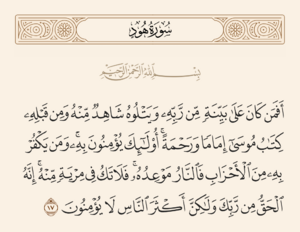 سُورَةُ هُودٍ
بِسْمِ ٱللَّهِ ٱلرَّحْمَٰنِ ٱلرَّحِيمِ
أَفَمَن كَانَ عَلَىٰ بَيِّنَةٍ مِّن رَّبِّهِۦ وَيَتْلُوهُ شَاهِدٌ مِّنْهُ وَمِن قَبْلِهِۦ
كِتَٰبُ مُوسَىٰٓ إِمَامًا وَرَحْمَةً ۚ أُو۟لَٰٓئِكَ يُؤْمِنُونَ بِهِۦ ۚ وَمَن يَكْفُرْ
بِهِۦ مِنَ ٱلْأَحْزَابِ فَٱلنَّارُ مَوْعِدُهُۥ ۚ فَلَا تَكُ فِى مِرْيَةٍ مِّنْهُ ۚ إِنَّهُ
ٱلْحَقُّ مِن رَّبِّكَ وَلَٰكِنَّ أَكْثَرَ ٱلنَّاسِ لَا يُؤْمِنُونَ ١٧